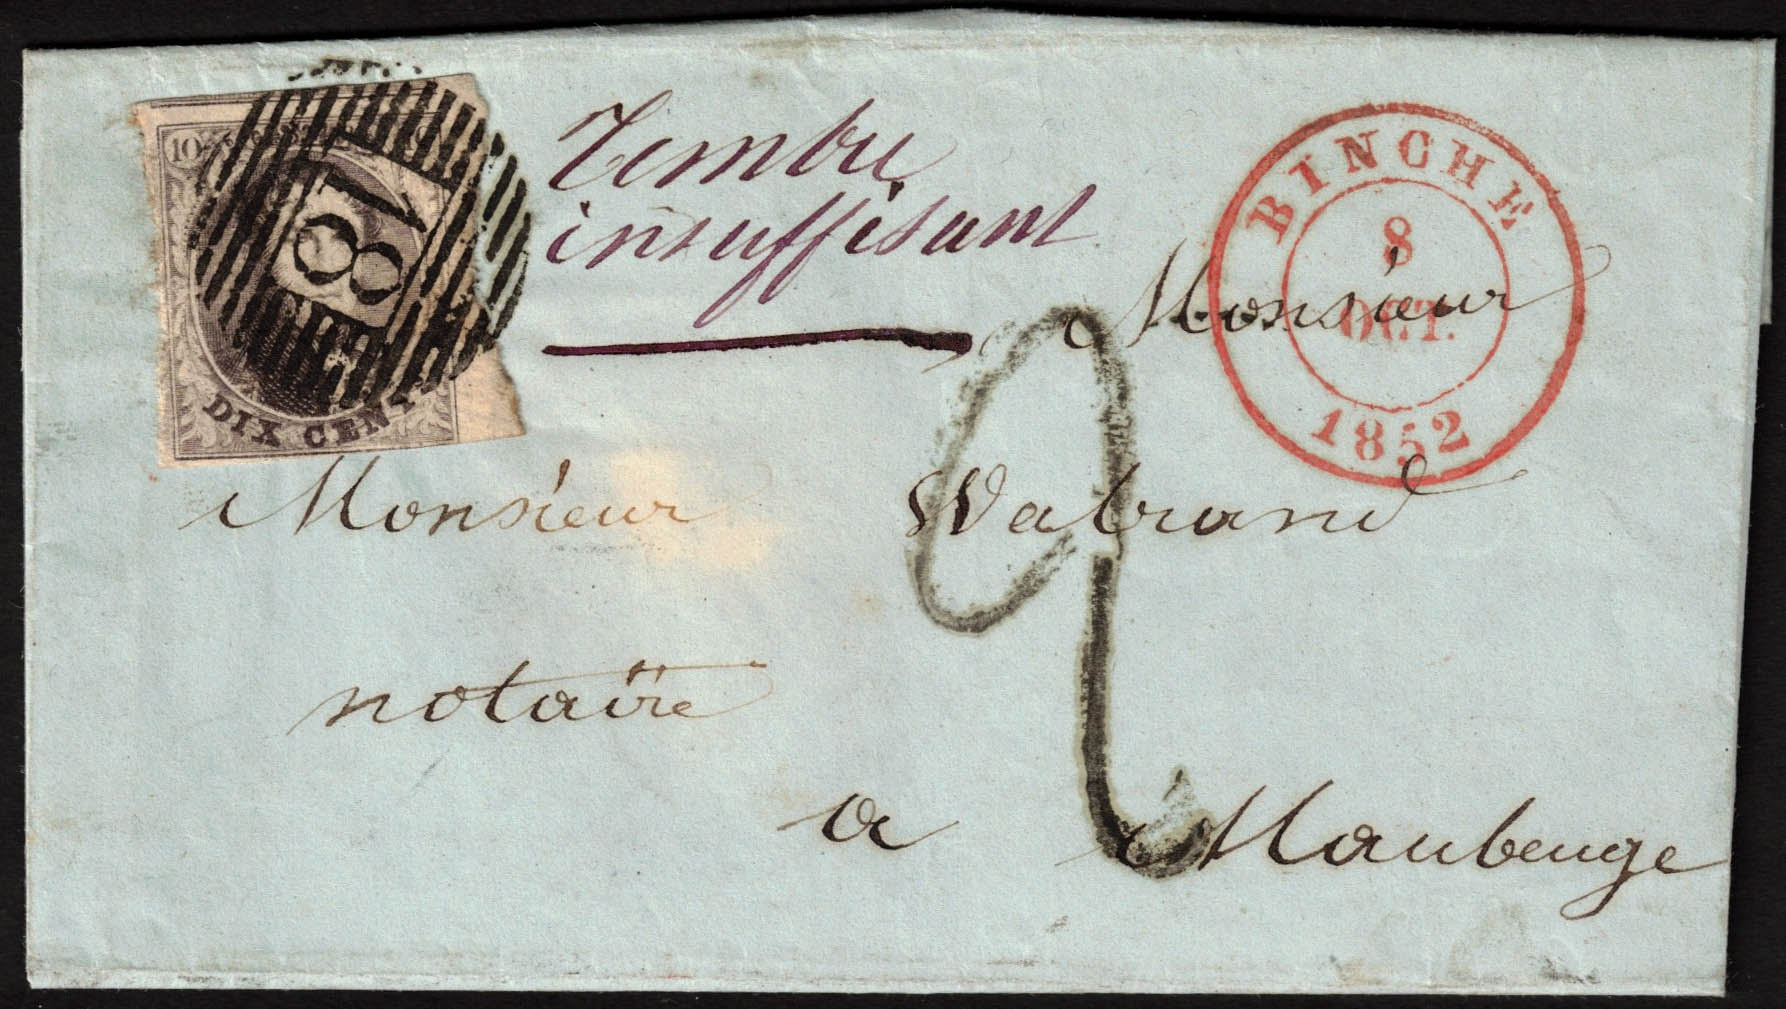 10
18
DIX CENT
Tembre
insuffisant
BINCHE
8
OCT.
1852
2
Monsieur
Monsieur Walrand
notaire
a Maubeuge